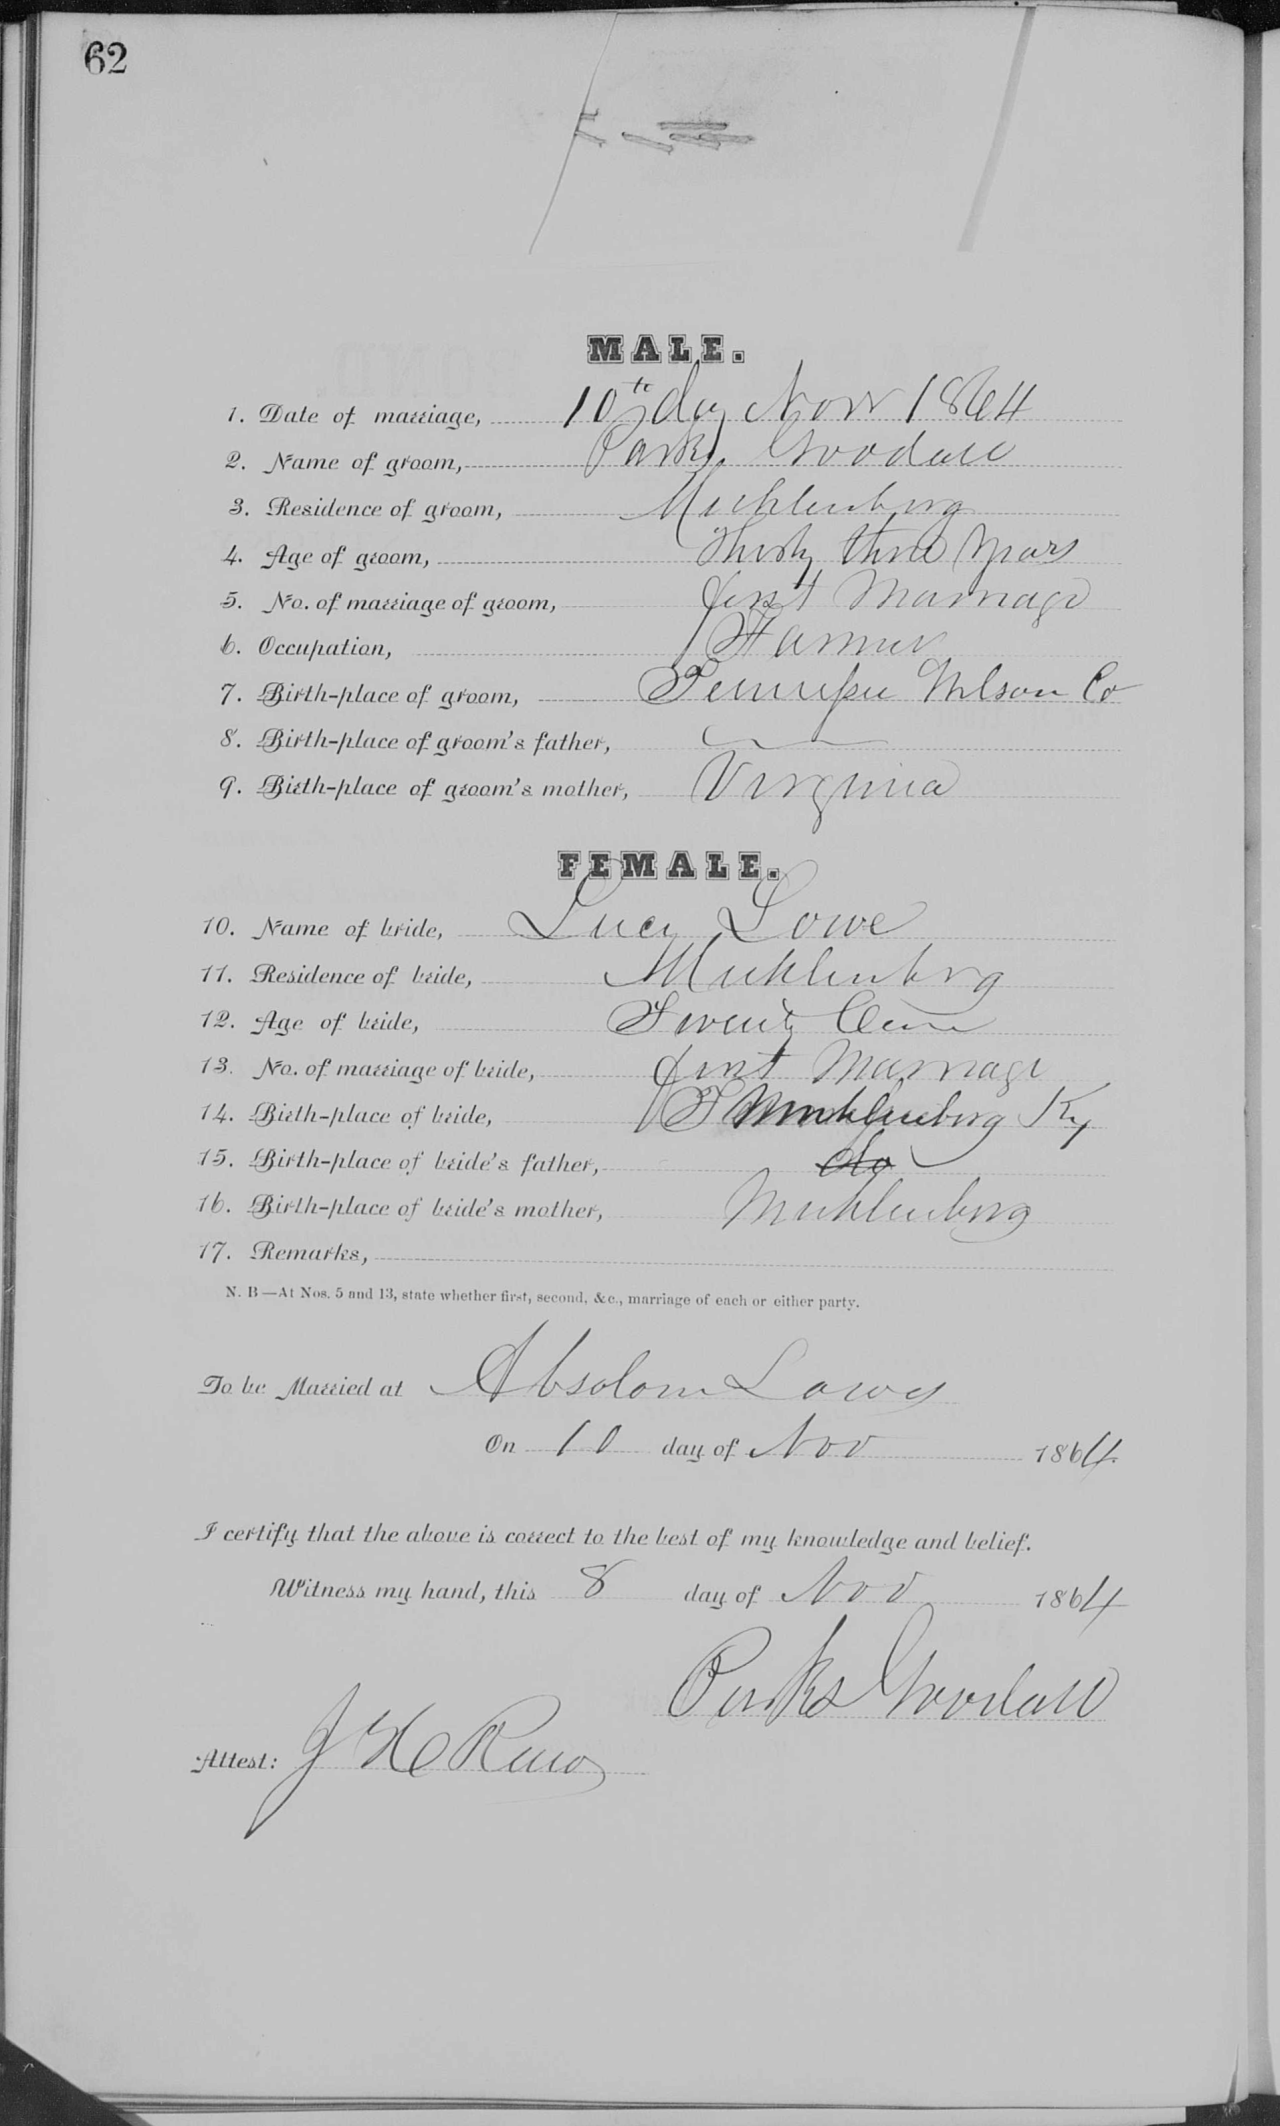 62
MALE.
1. Date of marriage, 10th day Nov 1864
2. Name of groom, Parks Goodall
3. Residence of groom, Muhlenberg
4. Age of groom, Thirty three Years
5. No. of marriage of groom, first Marriage
6. Occupation, Farmer
7. Birth-place of groom, Tennessee Wilson Co
8. Birth-place of groom's father,
9. Birth-place of groom's mother, Virginia
FEMALE.
10. Name of bride, Lucy Lowe
11. Residence of bride, Muhlenberg
12. Age of bride, Twenty
13. No. of marriage of bride, first Marriage
14. Birth-place of bride, Muhlenberg Ky
15. Birth-place of bride's father, do
16. Birth-place of bride's mother, Muhlenberg
17. Remarks,
N. B—At Nos. 5 and 13, state whether first, second, &c., marriage of each or either party.
To be Married at Absolom Lowes
On 10 day of Nov 1864
I certify that the above is correct to the best of my knowledge and belief.
Witness my hand, this 8 day of Nov 1864
Parks Goodall
Attest: J H Reno